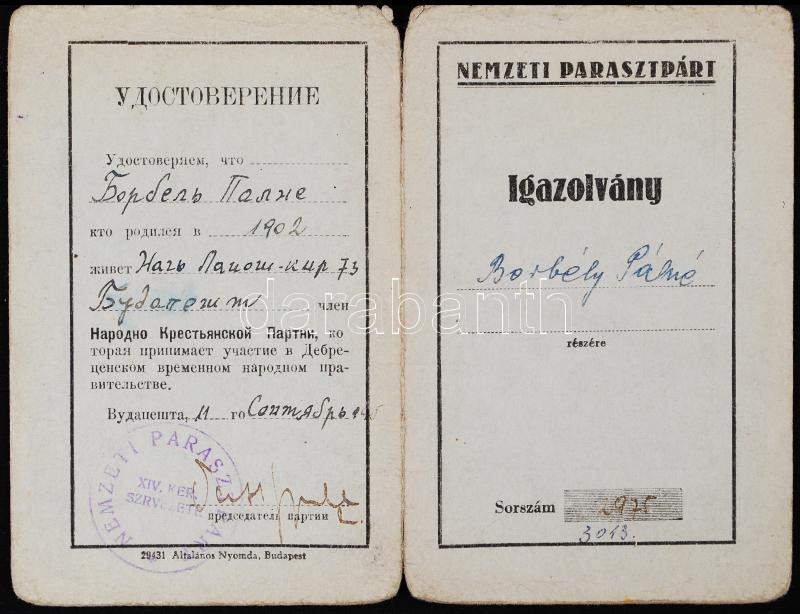 УДОСТОВЕРЕНИЕ
Удостоверяем, что
Борбель Палне
кто родился в 1902
живет Нагь Лаиош-кир 73
Будапешт член
Народно Крестьянской Партии, ко
торая принимает участие в Дебре-
ценском временном народном пра-
вительстве.
Вудапешта, 11 го Сентябрь
NEMZETI PARASZ
XIV. KER.
SZRVEZETE
председатель партии
29431 Általános Nyomda, Budapest
NEMZETI PARASZTPÁRT
Igazolvány
Borbély Pálné
részére
Sorszám 2975
3013.
darabanth